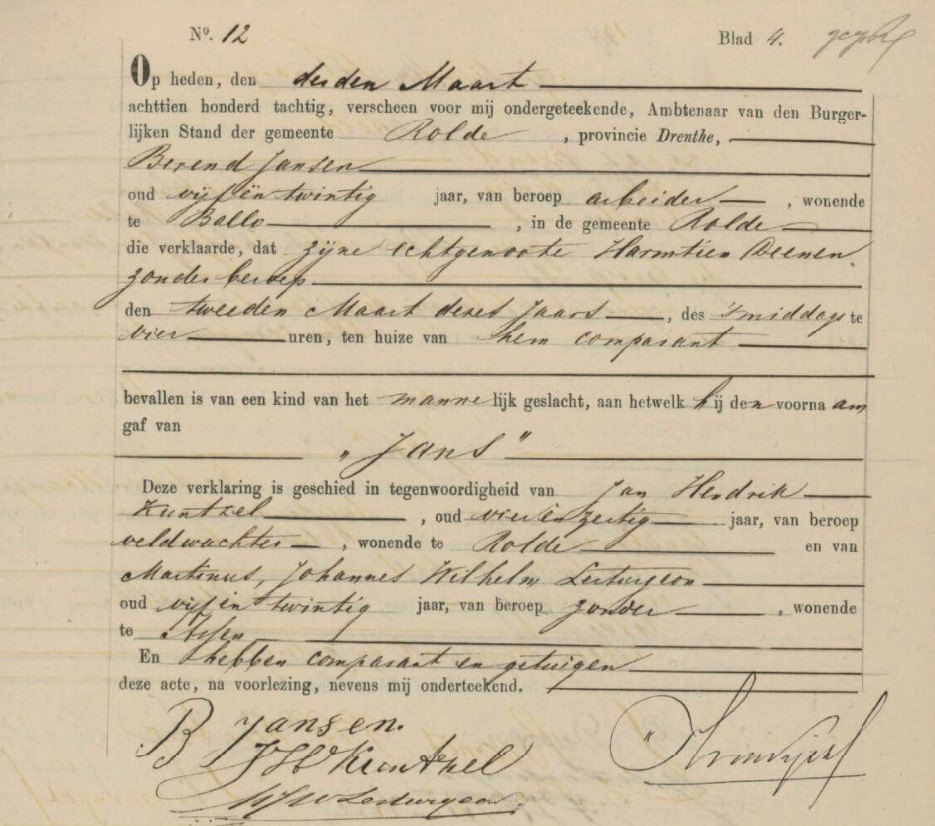 No. 12 Blad 4.
Op heden, den derden Maart
achttien honderd tachtig, verscheen voor mij ondergeteekende, Ambtenaar van den Burger-
lijken Stand der gemeente Rolde, provincie Drenthe,
Berend Jansen
oud vijf en twintig jaar, van beroep arbeider, wonende
te Ballo, in de gemeente Rolde
die verklaarde, dat zijne echtgenoote Harmtien Deenen
zonder beroep
den tweeden Maart dezes Jaars, des 's middags te
vier uren, ten huize van hem comparant
bevallen is van een kind van het mannelijk geslacht, aan hetwelk hij den voornaam
gaf van
„Jans"
Deze verklaring is geschied in tegenwoordigheid van Jan Hendrik
Kuntzel, oud vier en zestig jaar, van beroep
veldwachter, wonende te Rolde en van
Martinus, Johannes Wilhelm Lesturgeon
oud vijf en twintig jaar, van beroep zonder, wonende
te Assen
En hebben comparant en getuigen
deze acte, na voorlezing, nevens mij onderteekend.
B Jansen.
J H Kuntzel
MJW Lesturgeon